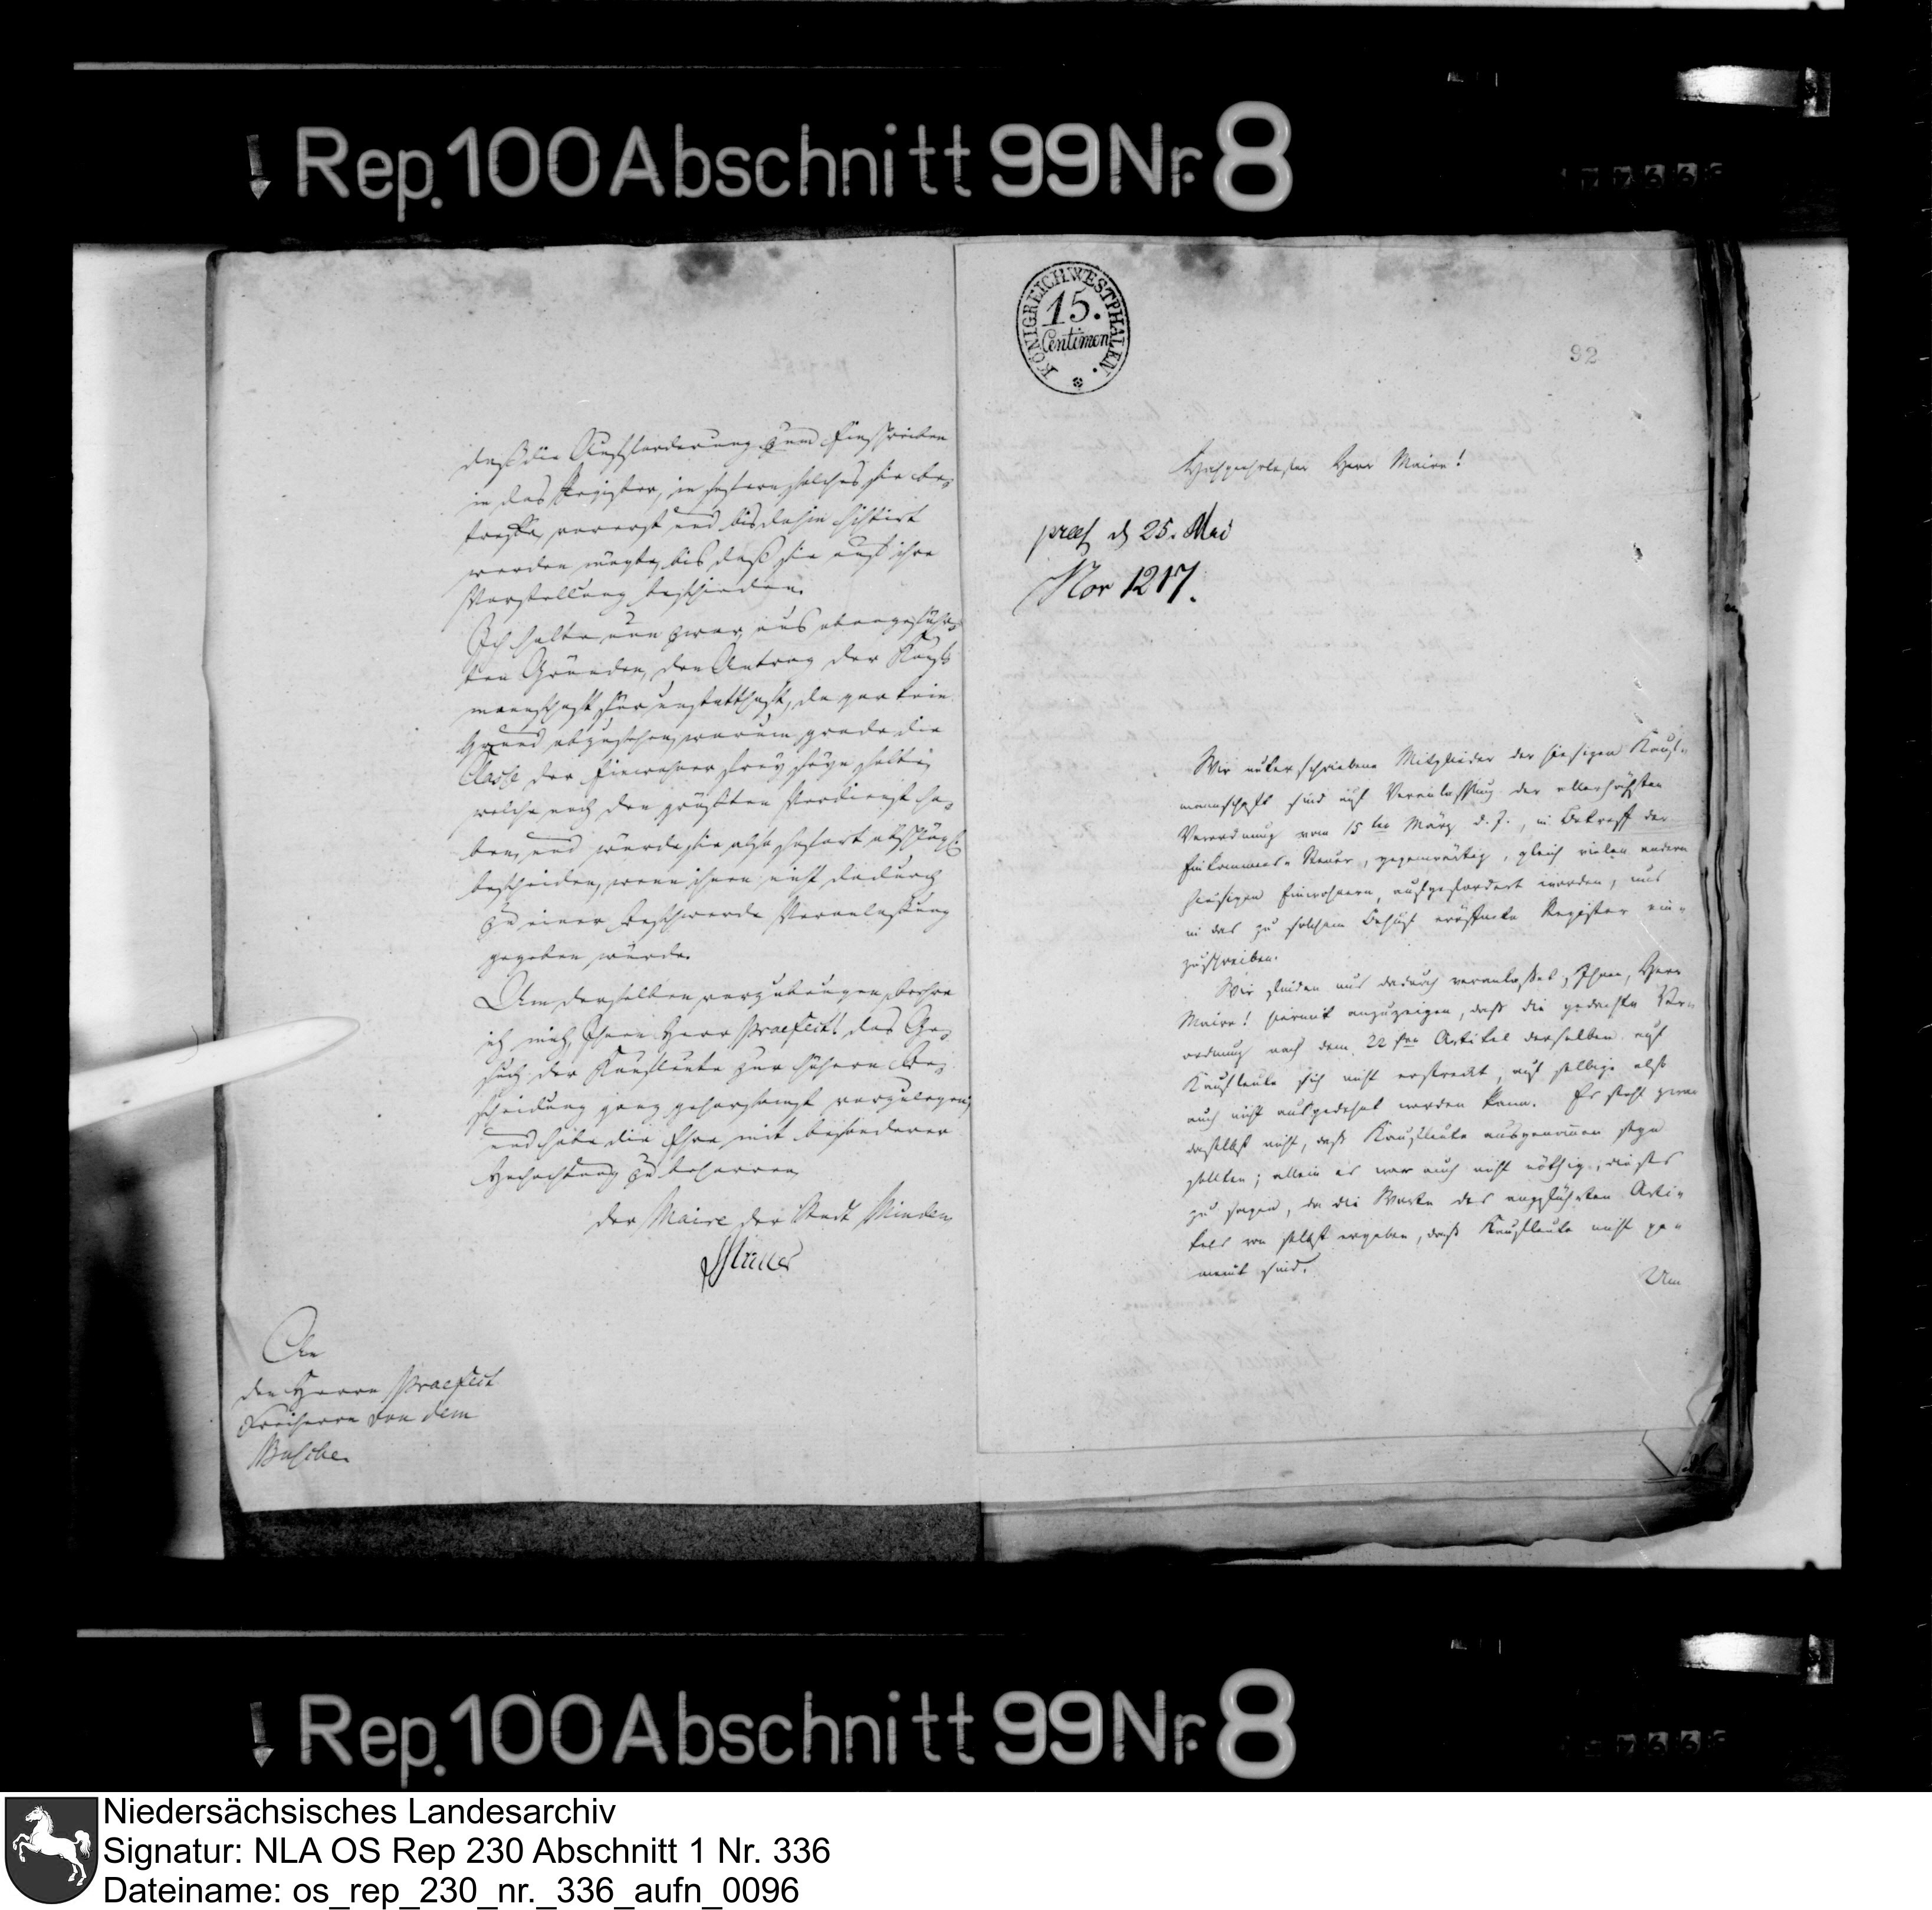 Rep. 100 Abschnitt 99 Nr. 8
daß die Aufforderung zum Einschreiben
in das Register, in sofern solches sie be-
treffe, vorerst und bis dahin sistirt
werden mögte, bis daß sie auf ihre
Vorstellung beschieden.
Ich halte nun zwar aus obangeführ-
ten Gründen, den Antrag der Kauf-
mannschaft für unstatthaft, da gar kein
Grund abzusehen, warum grade die
Classe der Einwohner frey seyn sollte,
welche noch den größten Verdienst ha-
ben, und würde sie also sofort abschlägl.
bescheiden, wenn ihnen nicht dadurch
zu einer Beschwerde Veranlassung
gegeben würde.
Um derselben vorzubeugen, beehre
ich mich, Ihnen Herr Praefect! das Ge-
such der Kaufleute zur höhern Be-
scheidung ganz gehorsamst vorzulegen,
und habe die Ehre mit besonderer
Hochachtung zu beharren
der Maire der Stadt Minden
An
den Herrn Praefect
Freiherrn von dem
Busche.
KÖNIGREICH WESTPHALEN.
15.
Centimen
92
Hochgeehrtester Herr Maire!
praes d 25. Mai
Nor 1217.
Wir unterschriebene Mitglieder der hiesigen Kauf-
mannschaft sind auf Veranlassung der allerhöchsten
Verordnung vom 15 ten März d. J., in Betreff der
Einkommens-Steuer, gegenwärtig, gleich vielen andern
hiesigen Einwohnern, aufgefordert worden, uns
in das zu solchem Behuf eröffnete Register ein-
zuschreiben.
Wir finden uns dadurch veranlaßet, Ihnen, Herr
Maire! hiermit anzuzeigen, daß die gedachte Ver-
ordnung nach dem 22 sten Artikel derselben auf
Kaufleute sich nicht erstreckt, auf selbige also
auch nicht ausgedehnt werden kann. Es steht zwar
daselbst nicht, daß Kaufleute ausgenommen seyn
sollten; allein es war auch nicht nöthig, dieses
zu sagen, da die Worte des angeführten Arti-
kels von selbst ergeben, daß Kaufleute nicht ge-
meint sind.
Um
Rep. 100 Abschnitt 99 Nr. 8
Niedersächsisches Landesarchiv
Signatur: NLA OS Rep 230 Abschnitt 1 Nr. 336
Dateiname: os_rep_230_nr._336_aufn_0096